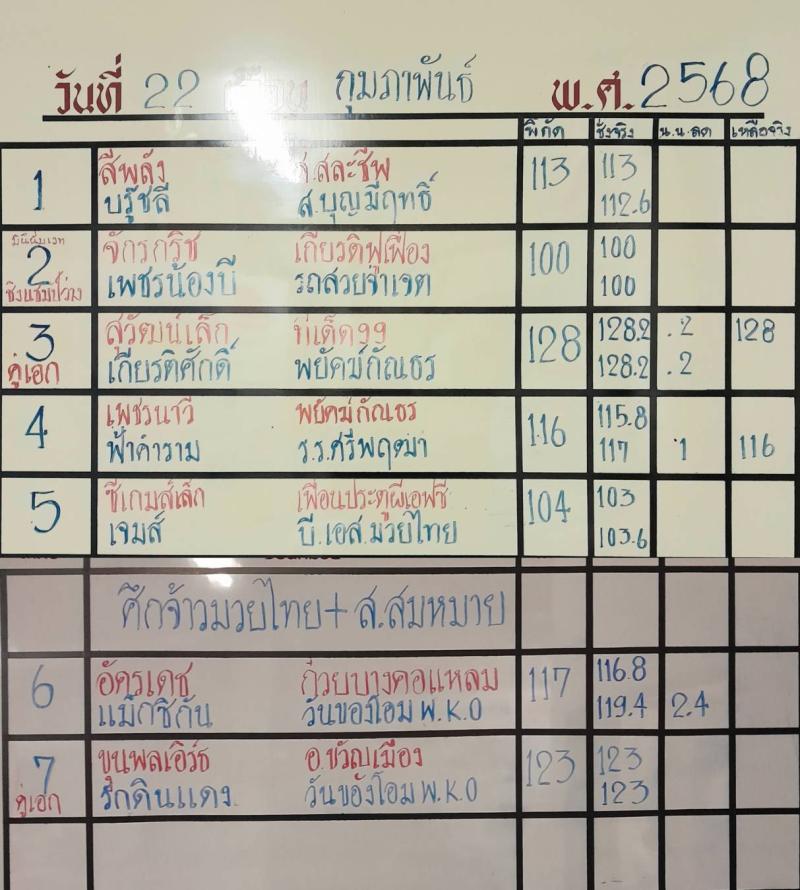 วันที่ 22 กุมภาพันธ์ พ.ศ. 2568
พิกัด ชั่งจริง น.น.ลด เหลือจริง
1 สีพลัง ส.สละชีพ 113 113
บรู๊ซลี ส.บุญมีฤทธิ์ 112.6
2 จักรกริช เกียรติฟูเฟื่อง 100 100
ชิงแชมป์ว่าง เพชรน้องบี รถสวยจ่าเจต 100
3 สุวัฒน์เล็ก ทีเด็ด99 128 128.2 .2 128
คู่เอก เกียรติศักดิ์ พยัคฆ์กัณธร 128.2 .2
4 เพชรนาวี พยัคฆ์กัณธร 116 115.8
ฟ้าคำราม ร.ร.ศรีพฤฒา 117 1 116
5 ซีเกมส์เล็ก เพื่อนประตูผีเอฟซี 104 103
เจมส์ บี.เอส.มวยไทย 103.6
ศึกจ้าวมวยไทย + ส.สมหมาย
6 อัครเดช ก๋วยบางคอแหลม 117 116.8
แม็กซิกัน วันของโอม P.K.O 119.4 2.4
7 ขุนพลเอิร์ธ อ.ขวัญเมือง 123 123
คู่เอก รักดินแดง วันของโอม P.K.O 123